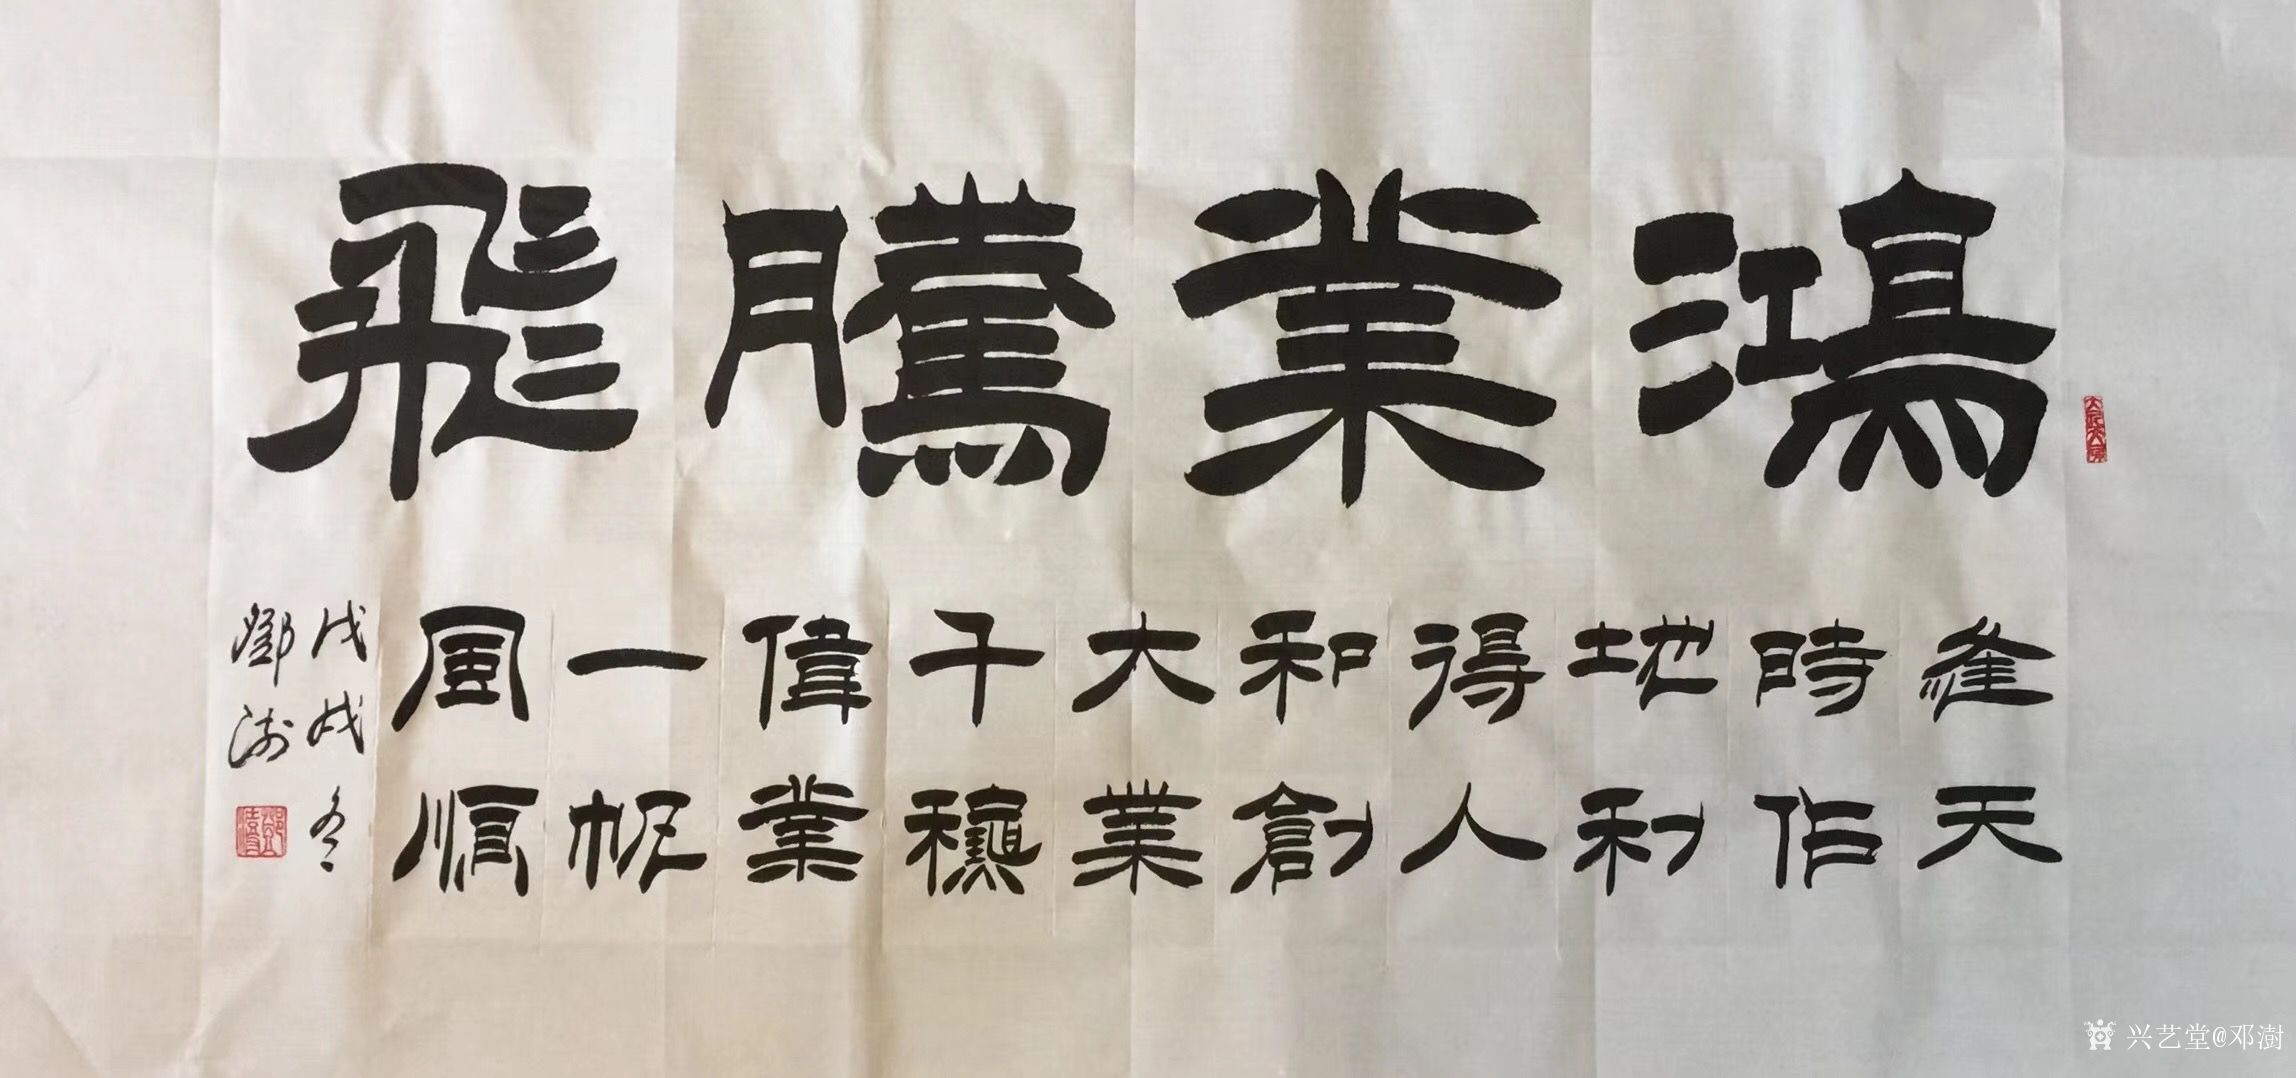 鴻業騰飛
天
時作
地利
得人
和創
大業
千龝
偉業
一帆
風順
戊戌冬
鄧澍
兴艺堂@邓澍